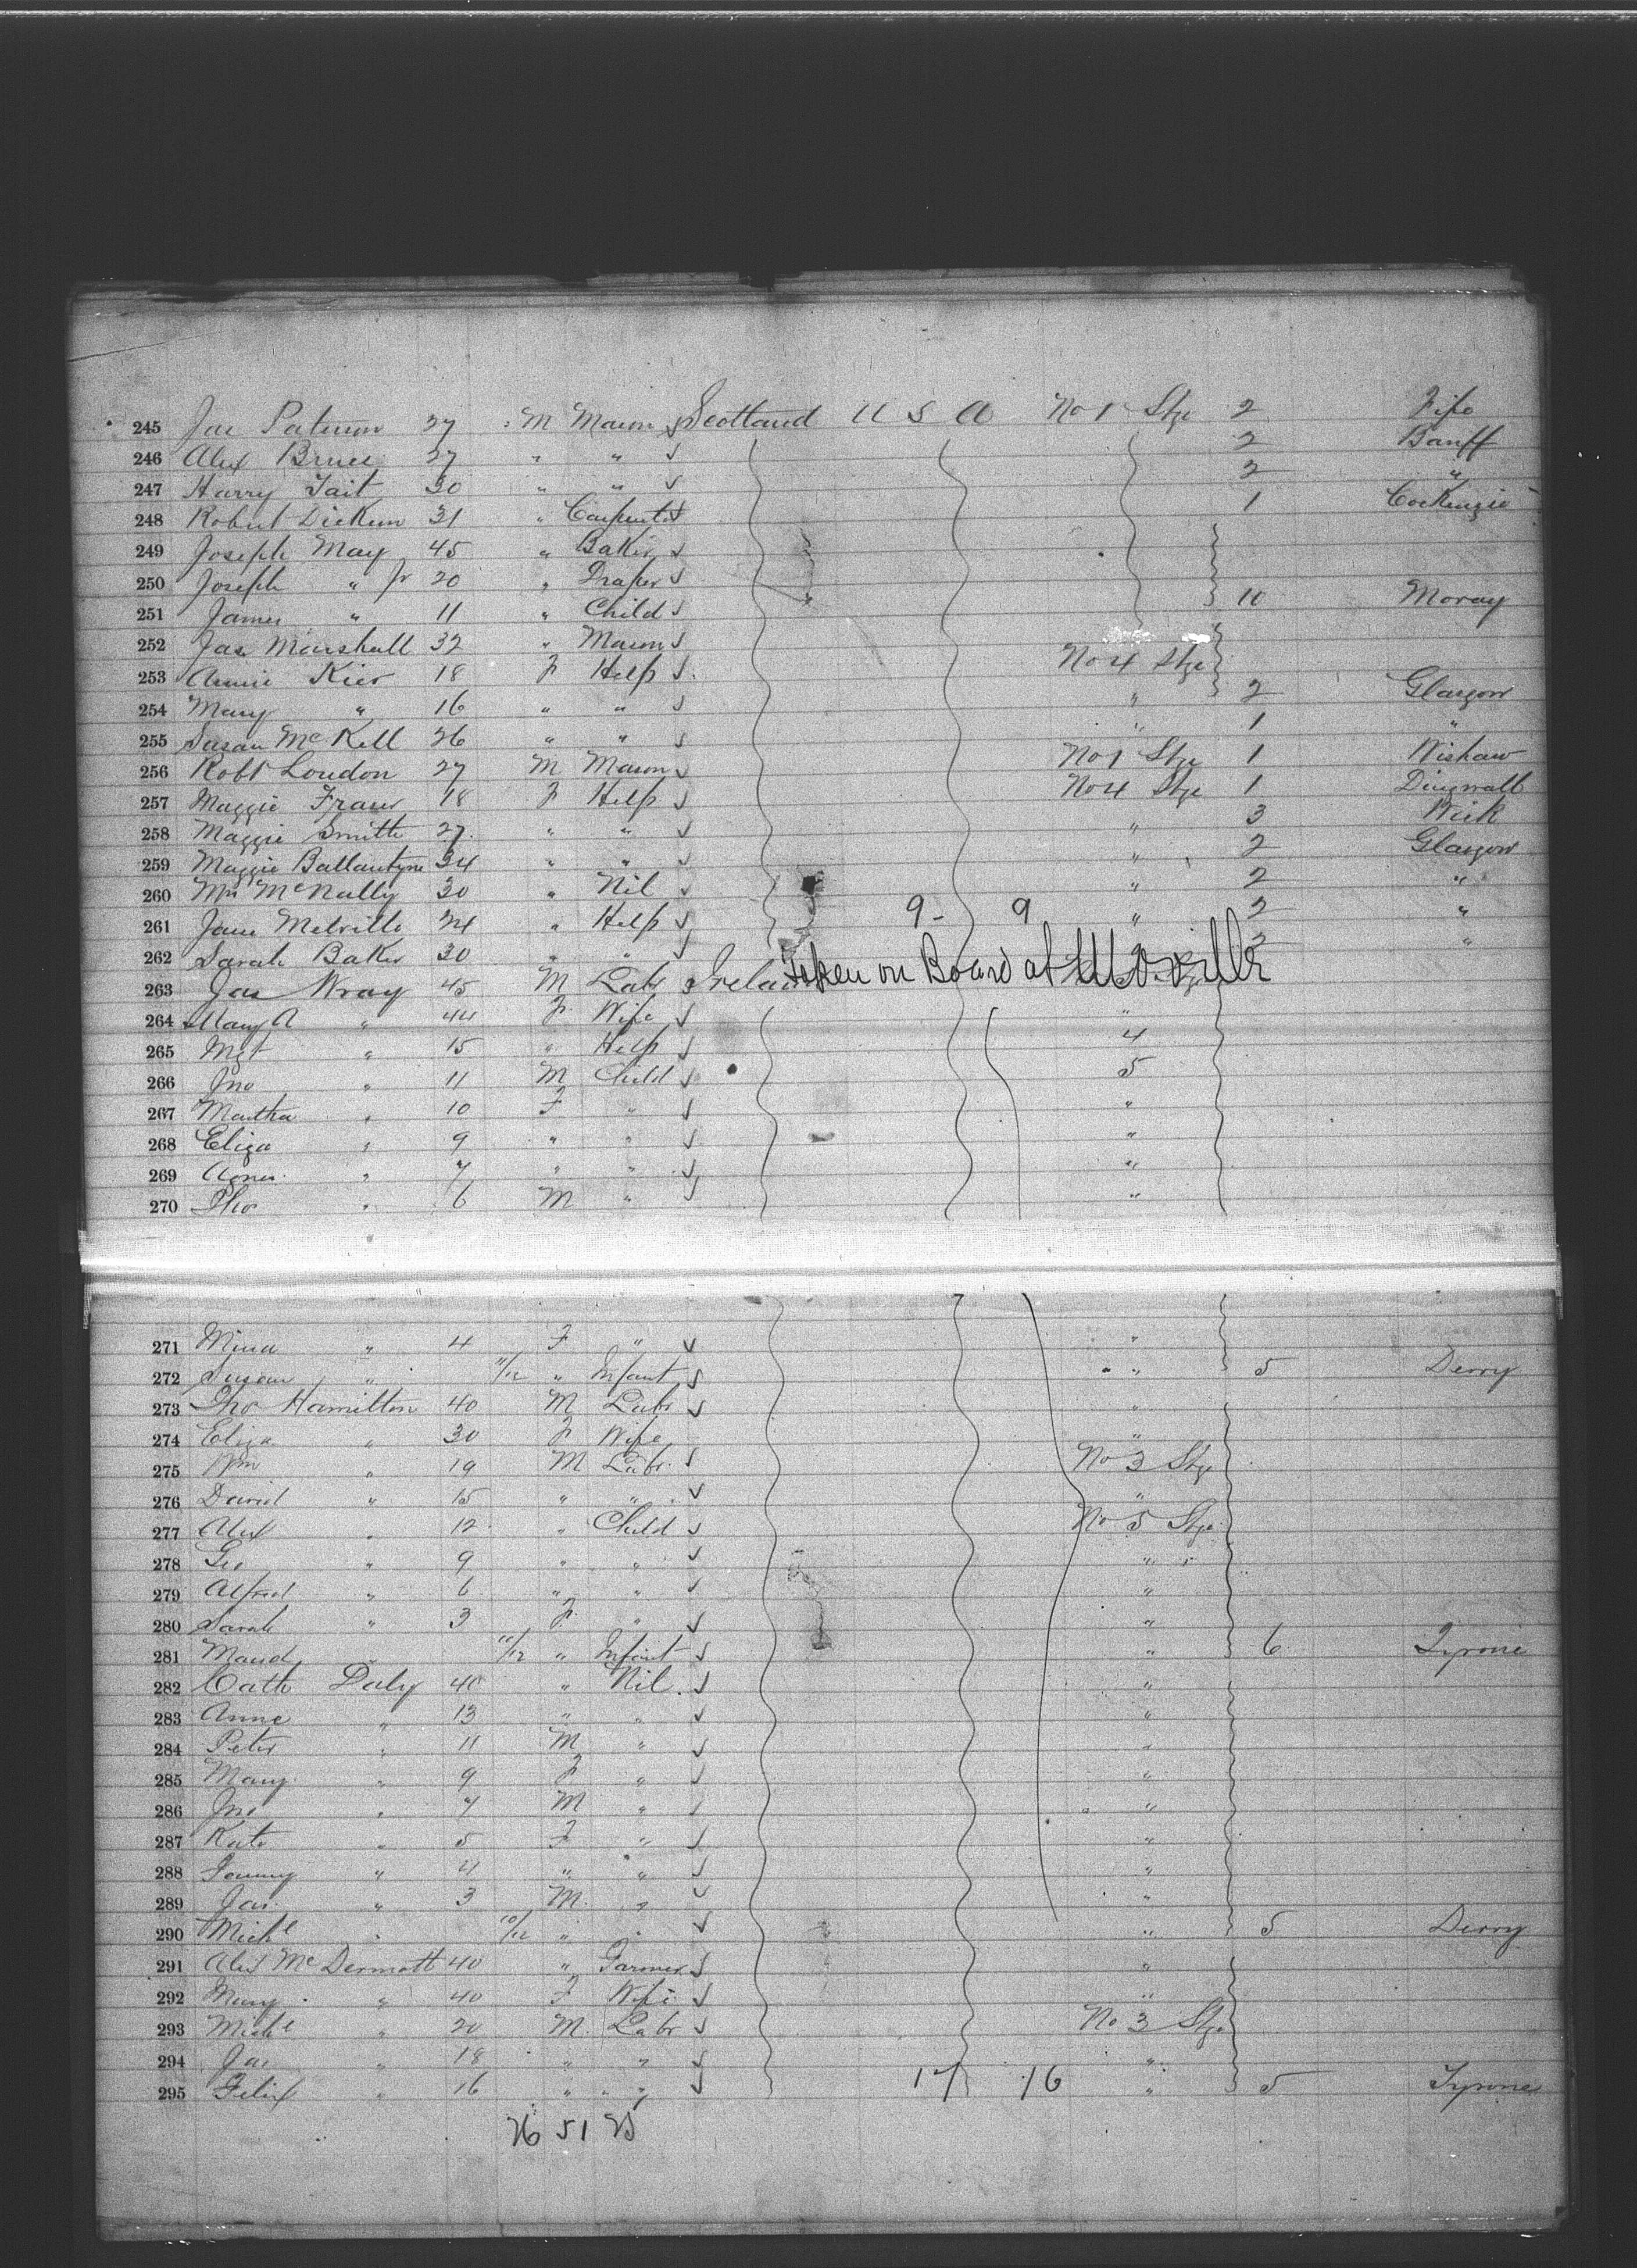 245 Jas Paterson 27 M Mason Scotland U S A No 1 Stge 2 Fife
246 Alex Bruce 27 " " 2 Banff
247 Harry Tait 30 " " 2 "
248 Robert Dickson 31 " Carpenter 1 Cockenzie
249 Joseph May 45 " Baker
250 Joseph " Jr 20 " Draper
251 James " 11 " Child 11 Moray
252 Jas Marshall 32 " Mason
253 Annie Kier 18 F Help No 4 Stge
254 Mary " 16 " " " 2 Glasgow
255 Susan McKell 26 " " " 1 "
256 Robt Loudon 27 M Mason No 1 Stge 1 Wishaw
257 Maggie Fraser 18 F Help No 4 Stge 1 Dingwall
258 Maggie Smith 27 " " " 3 Wick
259 Maggie Ballantyne 34 " " " 2 Glasgow
260 Mrs McNally 30 " Nil " 2 "
261 Jane Melville 24 " Help 9 - 9 " 2 "
262 Sarah Baker 30 " " 2 "
263 Jas Wray 45 M Labr Ireland Taken on Board at Moville
264 Mary A " 44 F Wife "
265 Mgt " 15 " Help 4
266 Jno " 11 M Child 5
267 Martha " 10 F " "
268 Eliza " 9 " " "
269 Agnes " 7 " " "
270 Tho " 6 M " "
271 Mina " 4 F " "
272 Susan " 11/12 " Infant " 5 Derry
273 Tho Hamilton 40 M Labr "
274 Eliza " 30 F Wife "
275 Wm " 19 M Labr No 3 Stge
276 David " 15 " " "
277 Alex " 12 " Child No 5 Stge
278 Geo " 9 " " "
279 Alfred " 6 " " "
280 Sarah " 3 F " "
281 Maud 11/12 " Infant " 6 Tyrone
282 Cath Daly 40 " Nil "
283 Anne " 13 " " "
284 Peter " 11 M " "
285 Mary " 9 F " "
286 Jno " 7 M " "
287 Kate " 5 F " "
288 " 4 " " "
289 Jas " 3 M " "
290 Michl " 10/12 " " " 5 Derry
291 Alex McDermott 40 " Farmer "
292 Mary " 40 F Wife "
293 Michl " 20 M Labr No 3 Stge
294 Jas " 18 " " "
295 Felix " 16 " " 17 16 " 5 Tyrone
26 51 25